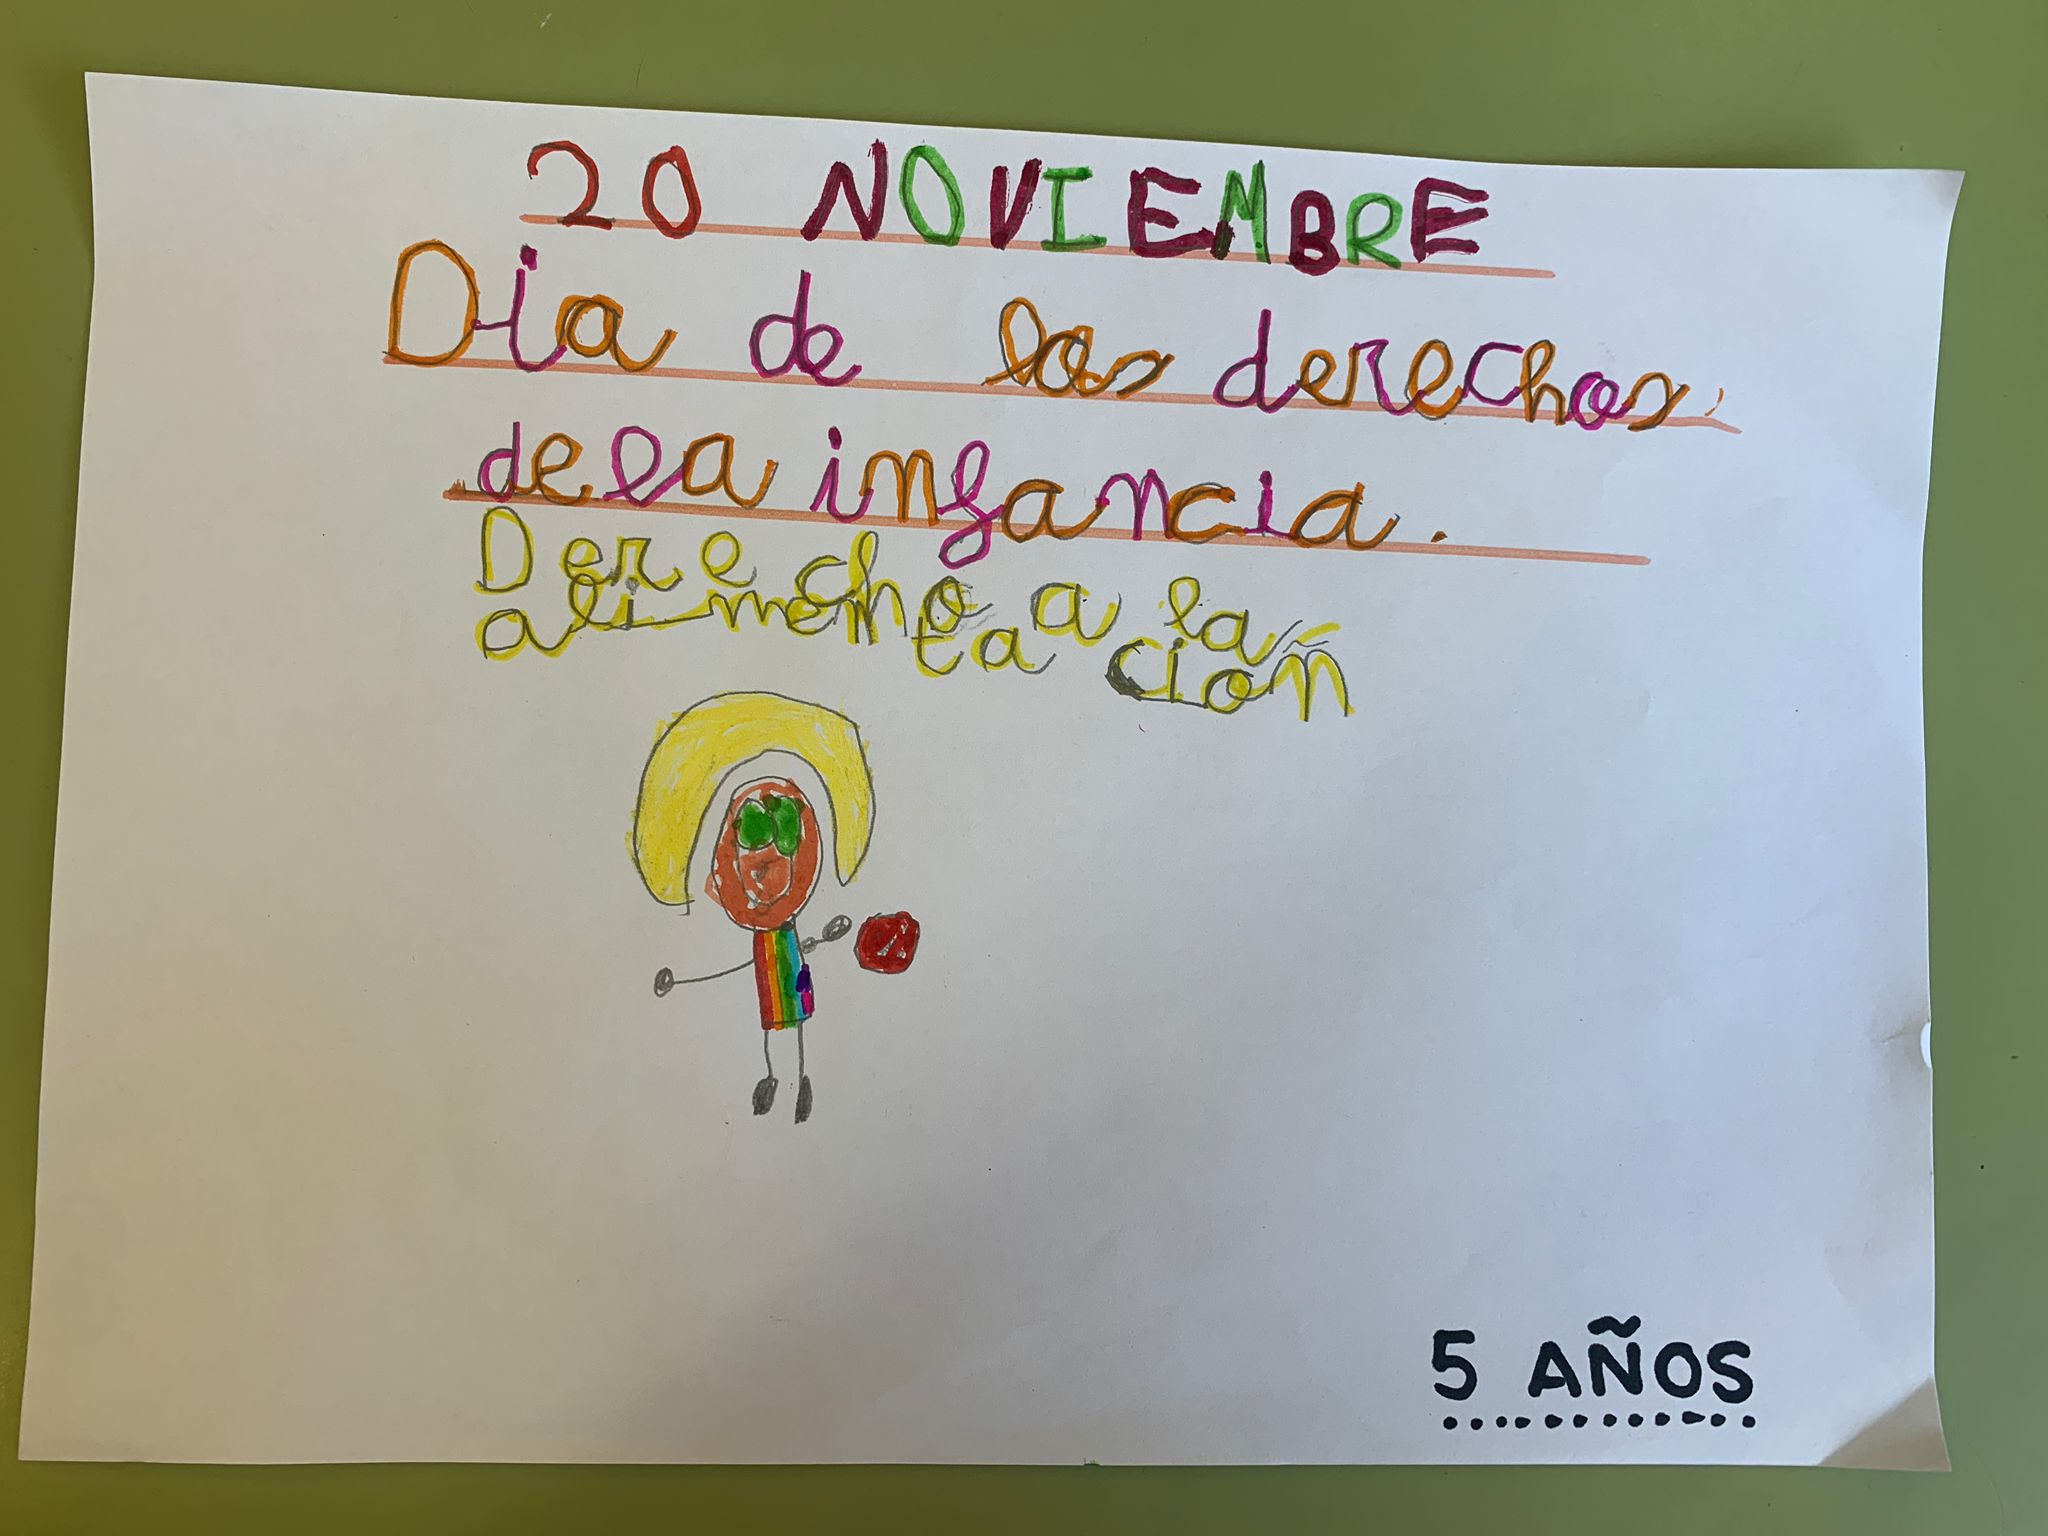 20 NOVIEMBRE
Dia de los derechos
de la infancia.
Derecho a la
alimentación
5 AÑOS